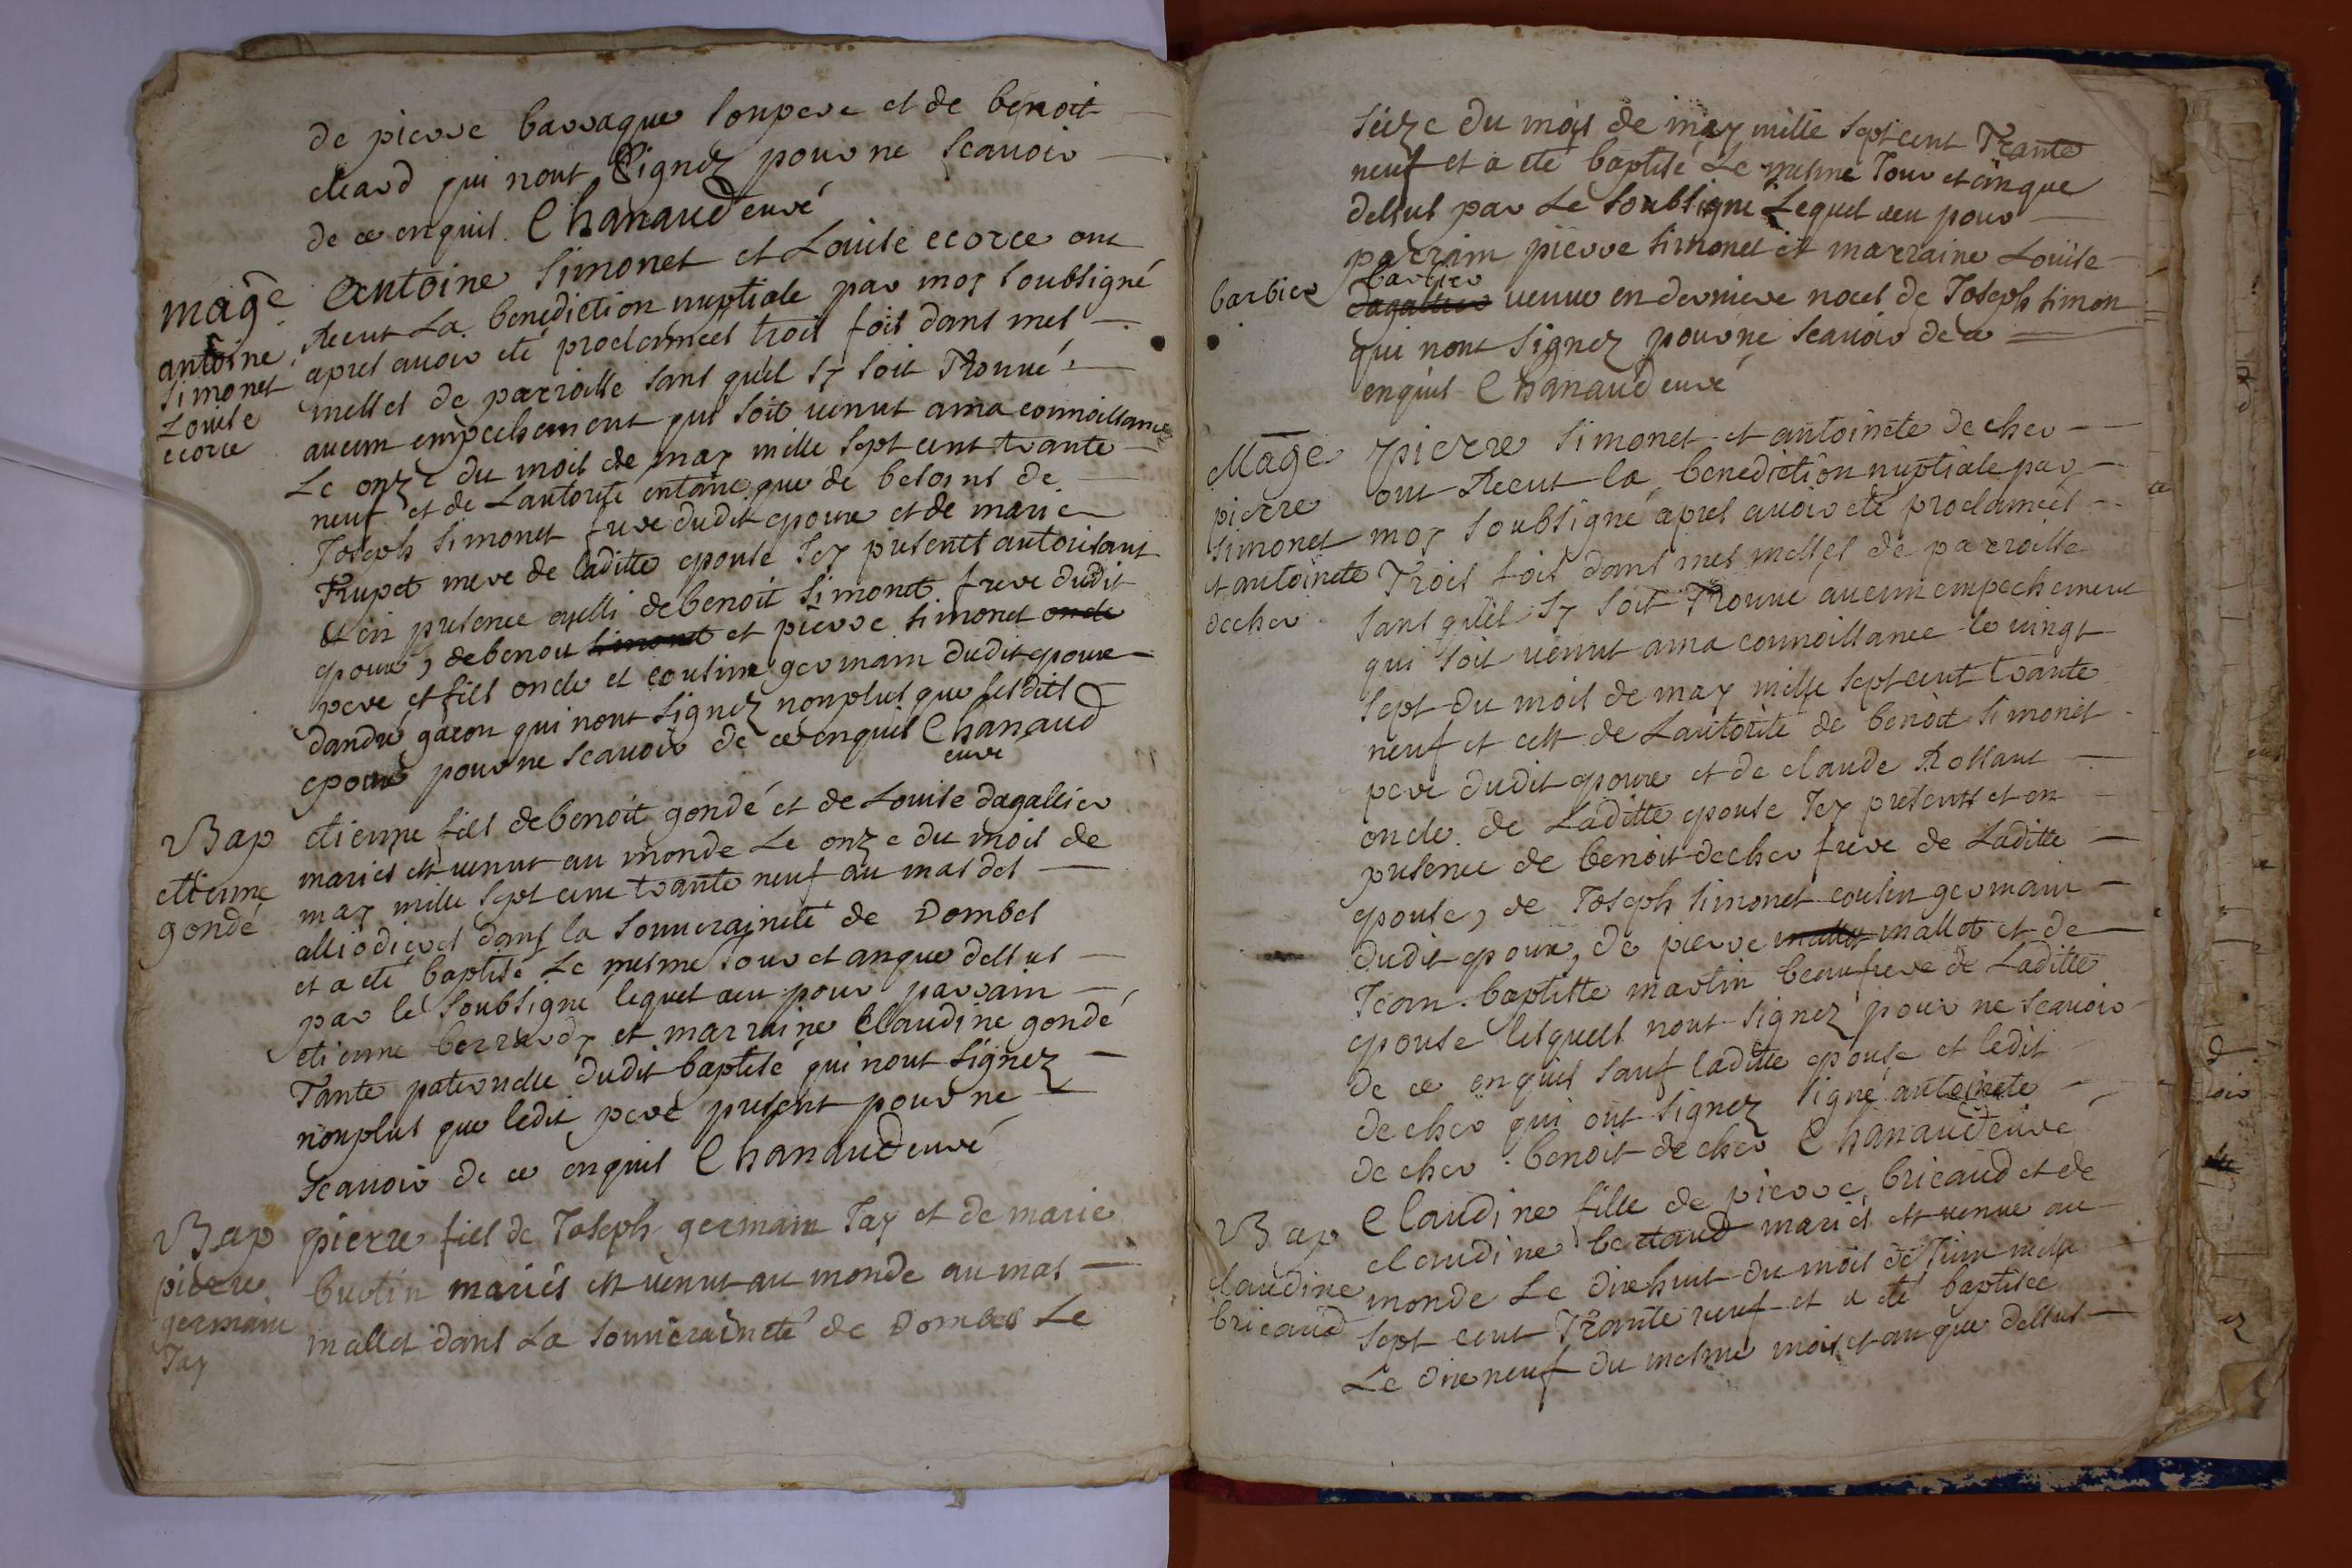 de pierre barraque son pere et de benoit
chard qui nont signez pour ne scavoir
de ce enquis. Chanaud curé
mage
antoine
simonet
Louise
ecorce
Antoine simonet et Louise ecorce ont
Receut La benediction nuptiale par moy soubsigné
apres avoir eté proclamees trois fois dans mes
messes de parroisse sans quil sy soit Trouvé
aucun empechement qui soit venut a ma connoissance
Le onze du mois de may mille sept cent trante
neuf et de Lautorité entaine que de besoins de
Joseph simonet frere dudit epoux et de marie
Trupet mere de laditte epouse Icy presents autorisants
et en presence aussi de benoit simonet frere dudit
epoux, de benoit simonet et pierre simonet oncle
pere et fils oncle et cousins germain dudit epoux
dandré gacon qui nont signez non plus que sesdits
epoux pour ne scavoir de ce enquis Chanaud
curé
Bap
etienne
gondé
etienne fils de benoit gondé et de Louise dagallier
mariés est venut au monde Le onze du mois de
may mille sept cent trante neuf au mas des
alliodieres dans la souveraineté de Dombes
et a eté baptisé Le mesme Jour et an que dessus
par le soubsigné lequel a eu pour parrain
etienne berrardy et marraine Claudine gondé
Tante paternelle dudit baptisé qui nont signez
non plus que ledit pere present pour ne
scavoir de ce enquis Chanaud curé
Bap
pierre
germain
Jay
pierre fils de Joseph germain Jay et de marie
burtin mariés est venut au monde au mas
mallet dans La souveraineté de Dombes Le
seize du mois de may mille sept cent Trante
neuf et a eté baptisé Le mesme Jour et an que
dessus par Le soubsigné Lequel a eu pour
parrain pierre simonet et marraine Louise
barbier
barbier
dagallier veuve en derniere noces de Joseph simon
qui nont signez pour ne scavoir de ce
enquis Chanaud curé
Mage
pierre
simonet
et antoinete
decher
pierre simonet et antoinete decher
ont Receut la benediction nuptiale par
moy soubsigné apres avoir eté proclamées
Trois fois dans mes messes de parroisse
sans quil sy soit Trouvé aucun empechement
qui soit venut a ma connoissance le vingt
sept du mois de may mille sept cent trante
neuf et cest de Lautorité de benoit simonet
pere dudit epoux et de claude Rossant
oncle de Laditte epouse Icy presents et en
presence de benoit decher frere de Laditte
epouse, de Joseph simonet cousin germain
dudit epoux, de pierre mallet mallet et de
Jean baptitte martin beaufrere de Laditte
epouse lesquels nont signez pour ne scavoir
de ce enquis sauf laditte epouse et ledit
decher qui ont signez signé antoinete
decher benoit decher Chanaud curé
Bap
claudine
bricaud
Claudine fille de pierre bricaud et de
claudine bertaud mariés est venue au
monde Le dixhuit du mois de Juin mille
sept cent Trante neuf et a eté baptisée
Le dixneuf du mesme mois et an que dessus